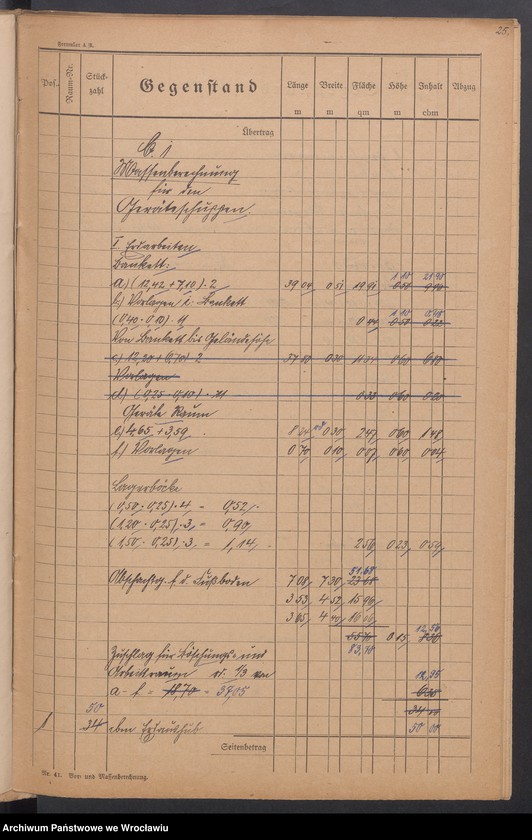 25.
Formular A.R.
Pos. Raum-Nr. Stückzahl Gegenstand Länge m Breite m Fläche qm Höhe m Inhalt cbm Abzug
Übertrag
Massenberechnung
für den
Geräteschuppen.
I. Erdarbeiten
Bankett:
1.10 21.98
a) (12,42 + 7,10) · 2 39 04 0 51 19 91
b.) Vorlagen i. Bankett
1.10 0.48
(0,40 · 0,10) · 11 0 44
Von Bankett bis Geländehöhe
c) 12,20 + 6,70) · 2 37 80 0 30 11 34 0 60 6 80
Vorlagen
d) (0,25 · 0,10) · 11 0 60
Geräte Raum
e) 4,65 + 3,59 8 24 0 30 2 47 0 60 1 48
f) Vorlagen 0 70 0 10 0 07 0 60 0 04
Lagerböcke
(0,50 · 0,25) · 4 = 0,52
(1,20 · 0,25) · 3 = 0,90
(1,50 · 0,25) · 3 = 1,14 2 56 0 23 0 59
51.68
Abschachtg. f. d. Fußboden 7 08 7 30
3 53 4 52 15 96
3 65 4 40 16 06
12,56
0 15
83,70
Zuschlag für Böschungs- und
Arbeitsraum 1/3 von
12,35
a - f = 37,05
50
34 cbm Erdaushub 50 00
Seitenbetrag
Nr. 41. Vor- und Massenberechnung.
Archiwum Państwowe we Wrocławiu